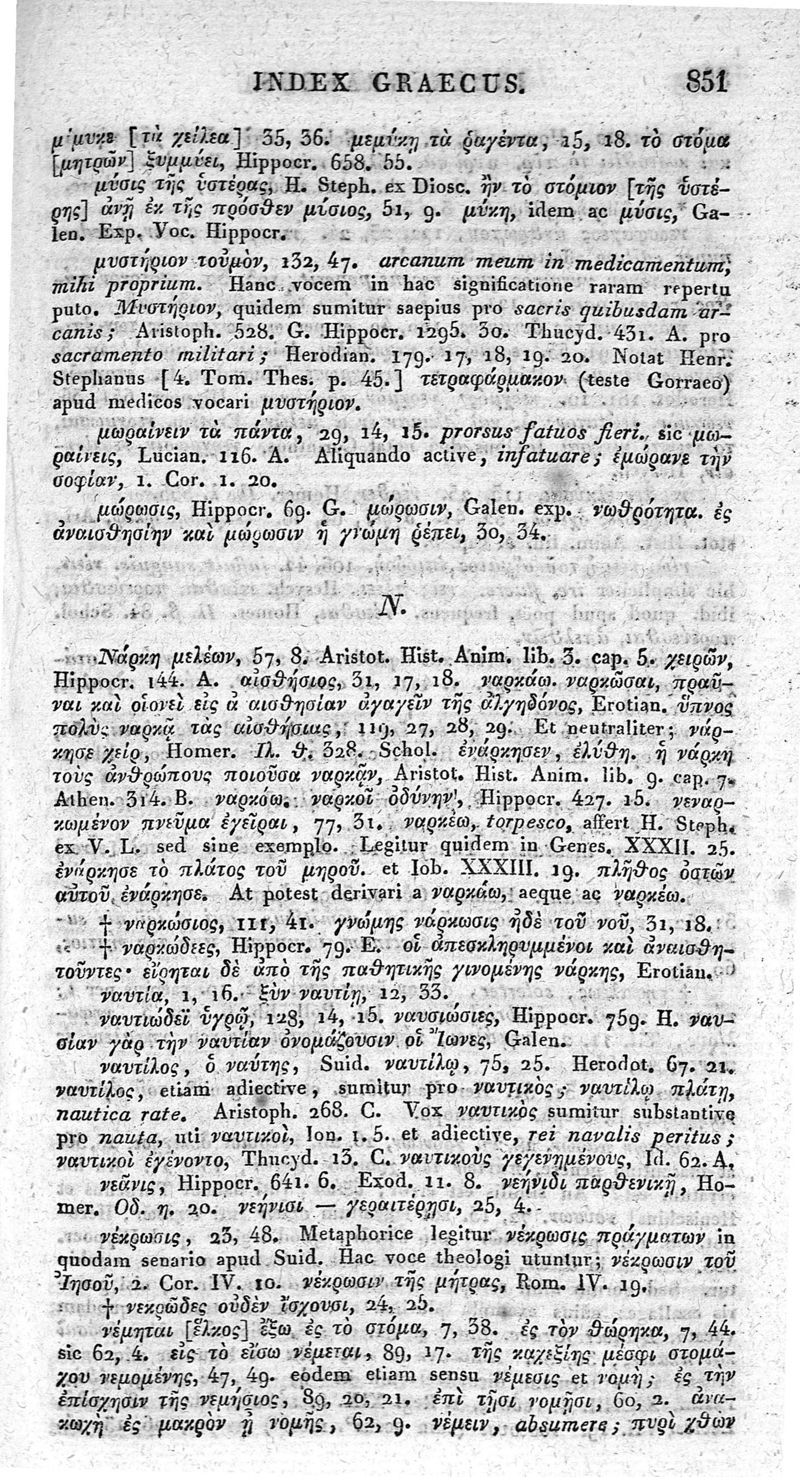 INDEX GRAECUS. 851
μέμυκε [τὰ χείλεα] 35, 36. μεμύκῃ τὰ ῥαγέντα, 15, 18. τὸ στόμα
[μητρῶν] ξυμμύει, Hippocr. 658. 55.
μύσις τῆς ὑστέρας, H. Steph. ex Diosc. ἢν τὸ στόμιον [τῆς ὑστέ-
ρης] ἀνῇ ἐκ τῆς πρόσθεν μύσιος, 51, 9. μύκη, idem ac μύσις, Ga-
len. Exp. Voc. Hippocr.
μυστήριον τοὐμὸν, 132, 47. arcanum meum in medicamentum,
mihi proprium. Hanc vocem in hac significatione raram repertu
puto. Μυστήριον, quidem sumitur saepius pro sacris quibusdam ar-
canis; Aristoph. 528. G. Hippocr. 1295. 30. Thucyd. 431. A. pro
sacramento militari; Herodian. 179. 17, 18, 19. 20. Notat Henr.
Stephanus [4. Tom. Thes. p. 45.] τετραφάρμακον (teste Gorraeo)
apud medicos vocari μυστήριον.
μωραίνειν τὰ πάντα, 29, 14, 15. prorsus fatuos fieri., sic μω-
ραίνεις, Lucian. 116. A. Aliquando active, infatuare; ἐμώρανε τὴν
σοφίαν, 1. Cor. 1. 20.
μώρωσις, Hippocr. 69. G. μώρωσιν, Galen. exp. νωθρότητα. ἐς
ἀναισθησίην καὶ μώρωσιν ἡ γνώμη ῥέπει, 30, 34.
N.
Νάρκη μελέων, 57, 8. Aristot. Hist. Anim. lib. 3. cap. 5. χειρῶν,
Hippocr. 144. A. αἰσθήσιος, 31, 17, 18. ναρκάω. ναρκῶσαι, πραῦ-
ναι καὶ οἱονεὶ εἰς ἀ αισθησίαν ἀγαγεῖν τῆς ἀλγηδόνος, Erotian. ὕπνος
πολὺς ναρκᾷ τὰς αἰσθήσιας, 119, 27, 28, 29. Et neutraliter; νάρ-
κησε χεὶρ, Homer. Ιλ. θ. 328. Schol. ἐνάρκησεν, ἐλύθη. ἡ νάρκη
τοὺς ἀνθρώπους ποιοῦσα ναρκᾷν, Aristot. Hist. Anim. lib. 9. cap. 7.
Athen. 314. B. ναρκόω. ναρκοῖ ὀδύνην, Hippocr. 427. 15. νεναρ-
κωμένον πνεῦμα ἐγεῖραι, 77, 31. ναρκέω, torpesco, affert H. Steph.
ex V. L. sed sine exemplo. Legitur quidem in Genes. XXXII. 25.
ἐνάρκησε τὸ πλάτος τοῦ μηροῦ. et Iob. XXXIII. 19. πλῆθος ὀστῶν
αὐτοῦ ἐνάρκησε. At potest derivari a ναρκάω, aeque ac ναρκέω.
† ναρκώσιος, 111, 41. γνώμης νάρκωσις ἠδὲ τοῦ νοῦ, 31, 18.
† ναρκώδεες, Hippocr. 79. E. οἱ ἀπεσκληρυμμένοι καὶ ἀναισθη-
τοῦντες· εἴρηται δὲ ἀπὸ τῆς παθητικῆς γινομένης νάρκης, Erotian.
ναυτία, 1, 16. ξὺν ναυτίῃ, 12, 33.
ναυτιώδεϊ ὑγρῷ, 128, 14, 15. ναυσιώσιες, Hippocr. 759. H. ναυ-
σίαν γὰρ τὴν ναυτίαν ὀνομάζουσιν οἱ Ἴωνες, Galen.
ναυτίλος, ὁ ναύτης, Suid. ναυτίλῳ, 75, 25. Herodot. 67. 21.
ναυτίλος, etiam adiective, sumitur pro ναυτικὸς; ναυτίλῳ πλάτῃ,
nautica rate. Aristoph. 268. C. Vox ναυτικὸς sumitur substantive
pro nauta, uti ναυτικοὶ, Ion. 1. 5. et adiective, rei navalis peritus;
ναυτικοὶ ἐγένοντο, Thucyd. 13. C. ναυτικοὺς γεγενημένους, Id. 62. A.
νεᾶνις, Hippocr. 641. 6. Exod. 11. 8. νεήνιδι παρθενικῇ, Ho-
mer. Οδ. η. 20. νεήνισι — γεραιτέρῃσι, 25, 4.
νέκρωσις, 23, 48. Metaphorice legitur νέκρωσις πράγματων in
quodam senario apud Suid. Hac voce theologi utuntur; νέκρωσιν τοῦ
Ἰησοῦ, 2. Cor. IV. 10. νέκρωσιν τῆς μήτρας, Rom. IV. 19.
† νεκρῶδες οὐδὲν ἴσχουσι, 24, 25.
νέμηται [ἕλκος] ἔξω ἐς τὸ στόμα, 7, 38. ἐς τὸν θώρηκα, 7, 44.
sic 62, 4. εἰς τὸ εἴσω νέμεται, 89, 17. τῆς καχεξίης μέσφι στομά-
χου νεμομένης, 47, 49. eodem etiam sensu νέμεσις et νομή; ἐς τὴν
ἐπίσχησιν τῆς νεμήσιος, 89, 20, 21. ἐπὶ τῇσι νομῇσι, 60, 2. ἀνα-
κωχὴ ἐς μακρὸν ᾖ νομῆς, 62, 9. νέμειν, absumere; πυρὶ χθὼν